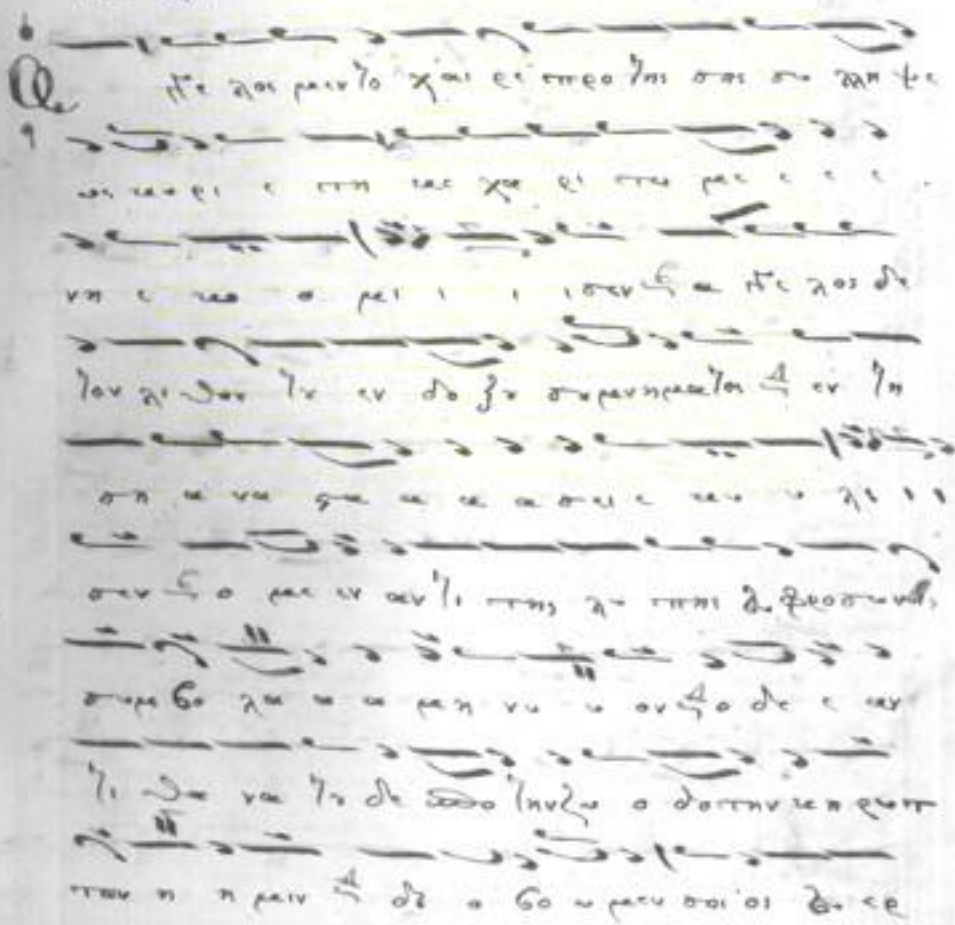 Α γγε λος μεν το χαι ρε προ της σης συ λλη ψε
ως κυ ρι ε τη κε χα ρι τω με ε ε ε
νη ε κο ο μι ι ι ι σεν α γγε λος δε
τον λι θον του εν δο ξου σου μνηματος εν τη
ση α να στα α α α σει ε κυ υ λι ι ι
σεν ο με εν αντι της λυ πης ευφροσυνης
συμ βο λα α α μη νυ υ ων ο δε ε αν
τι θα να του δε σπο την ζω ο δοτην κη ρυτ
των η η μιν δι ο βο ω μεν σοι οι ευ ερ